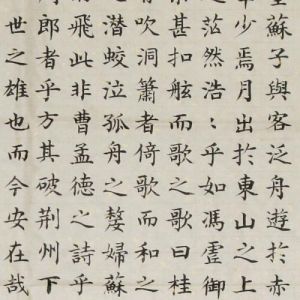 蘇子與客泛舟遊於赤
少焉月出於東山之上
茫然浩〻乎如馮虛御
甚扣舷而歌之歌曰桂
吹洞簫者倚歌而和之
潛蛟泣孤舟之嫠婦蘇
飛此非曹孟德之詩乎
郎者乎方其破荊州下
世之雄也而今安在哉